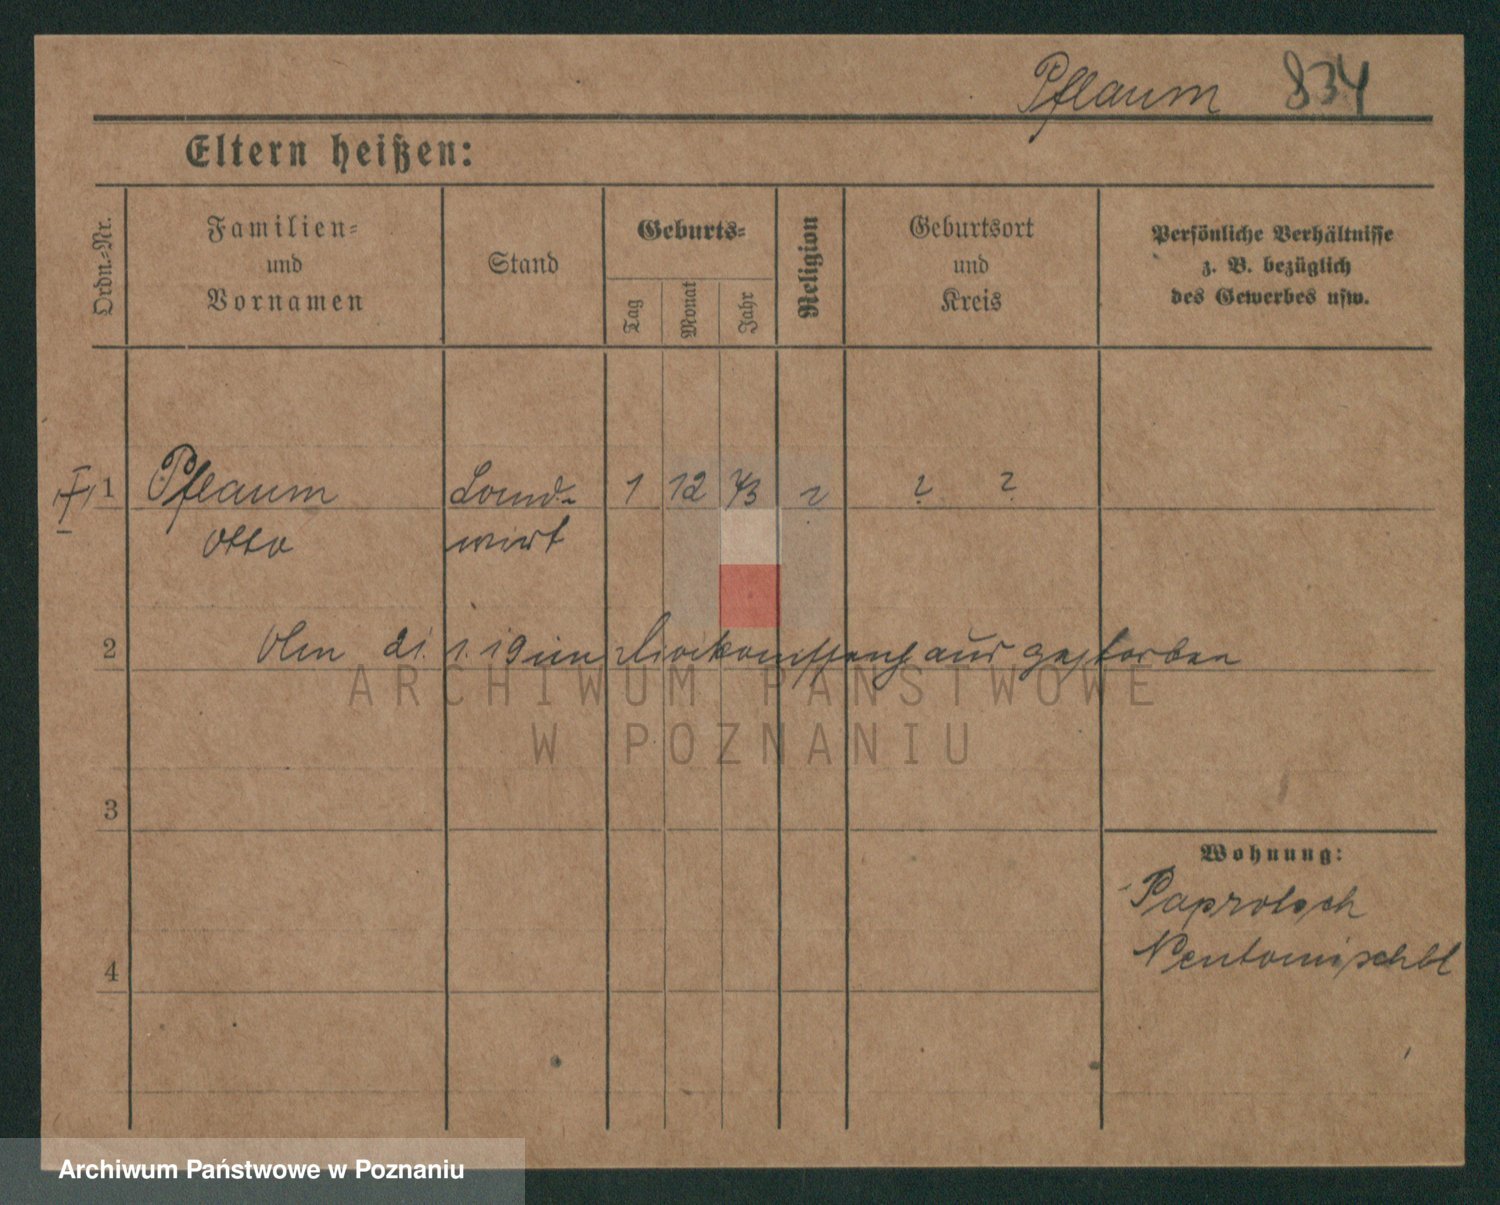 Pflaum 834
Eltern heißen:
Ordn.-Nr.
Familien-
und
Vornamen
Stand
Geburts-
Tag
Monat
Jahr
Religion
Geburtsort
und
Kreis
Persönliche Verhältnisse
z. B. bezüglich
des Gewerbes usw.
1 Pflaum Land- 1 12 73 ? ? ?
Otto wirt
2 Am 21. 1. 19 im Diakonissenhaus gestorben
ARCHIWUM PAŃSTWOWE
W POZNANIU
3
Wohnung:
Paprotsch
Neutomischel
4
Archiwum Państwowe w Poznaniu